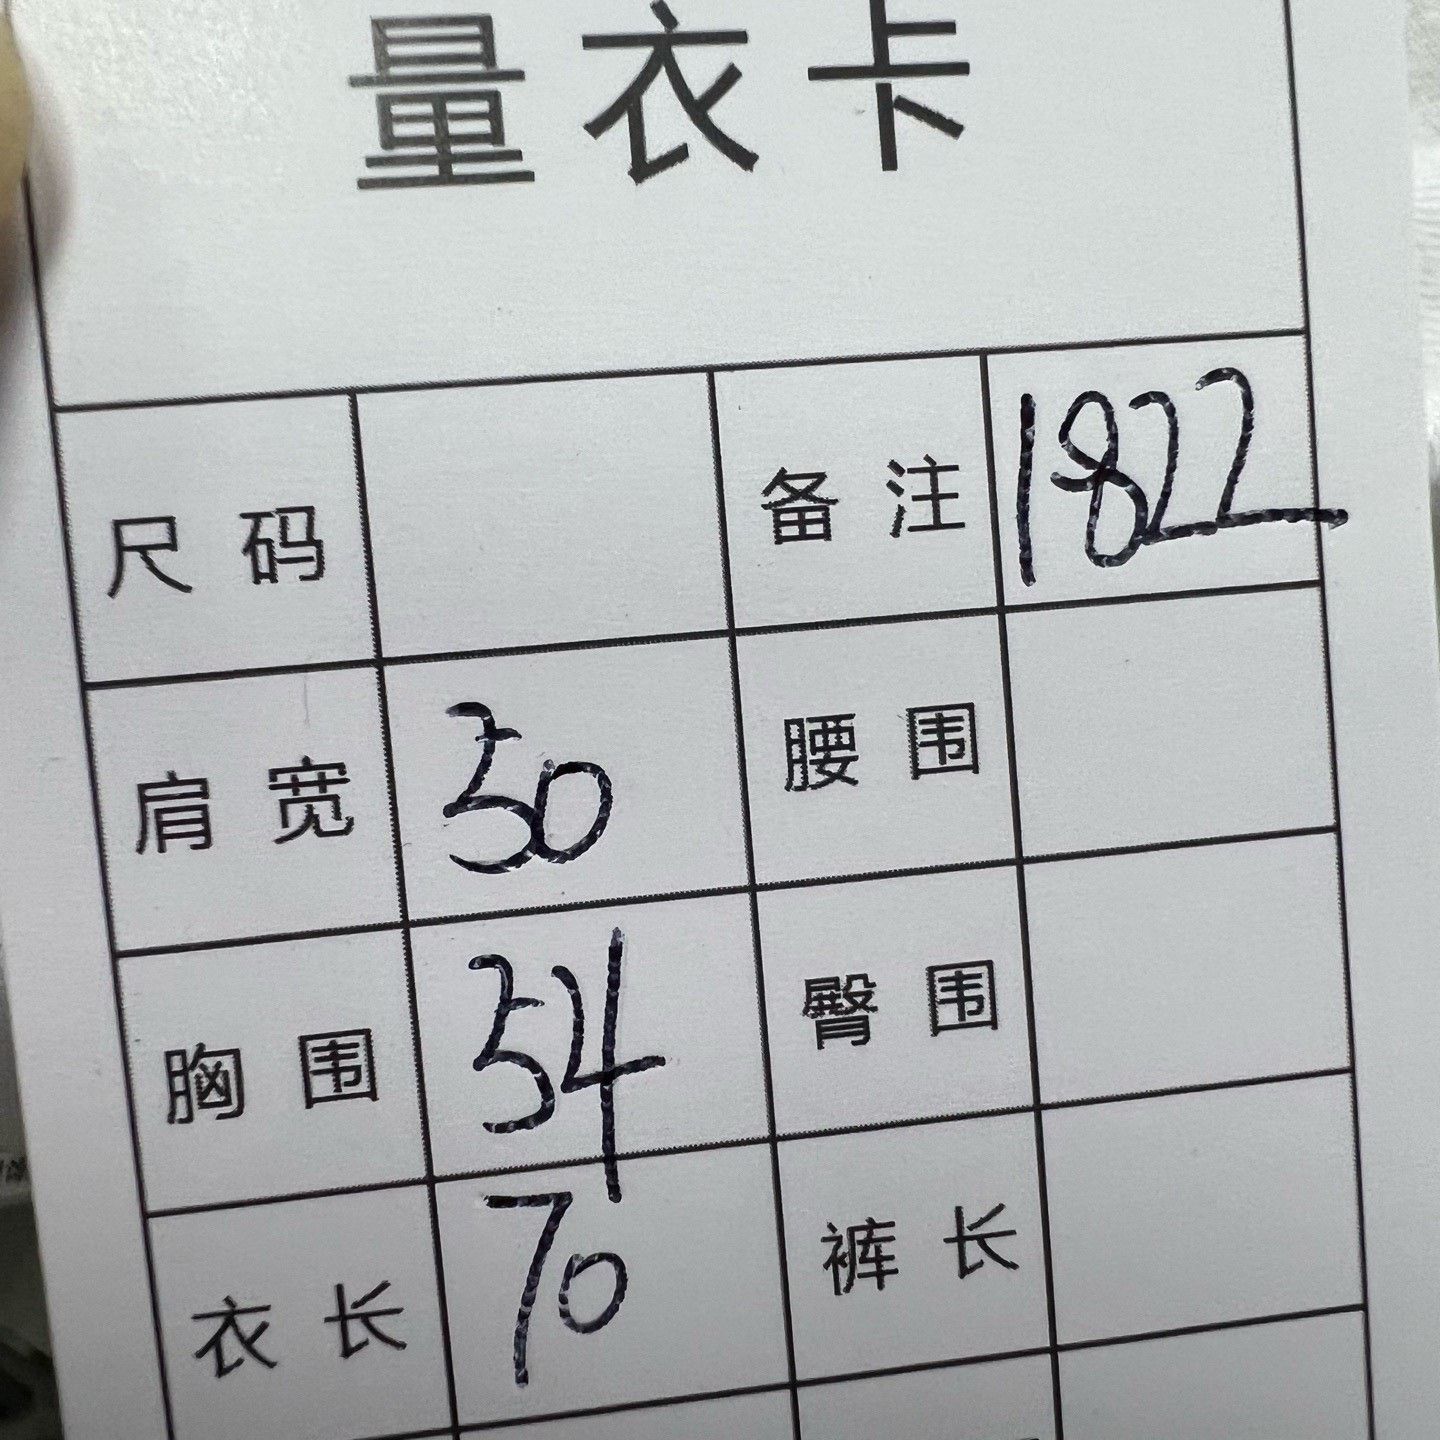 量衣卡
尺码 备注 1822
肩宽 50 腰围
胸围 54 臀围
衣长 70 裤长